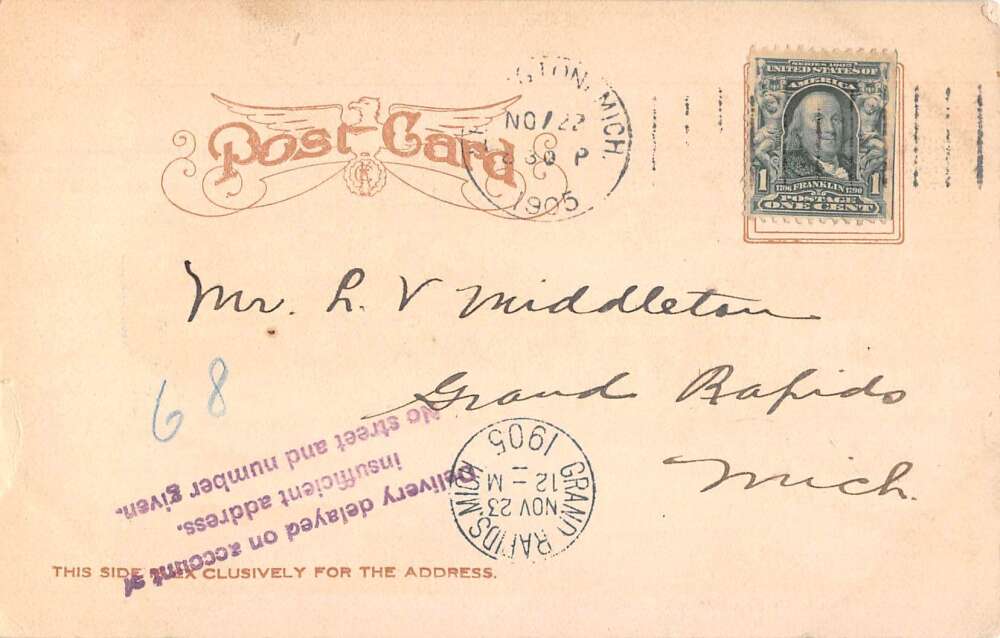 Post Card
GTON, MICH.
NOV 22
8 30 P
1905
SERIES 1902
UNITED STATES OF
AMERICA
1 1706 FRANKLIN 1790 1
POSTAGE
ONE CENT
Mr. L. V Middleton
Grand Rapids
Mich.
68
GRAND RAPIDS. MICH
NOV 23
12 - M
1905
Delivery delayed on account of
insufficient address.
No street and number given.
THIS SIDE EXCLUSIVELY FOR THE ADDRESS.